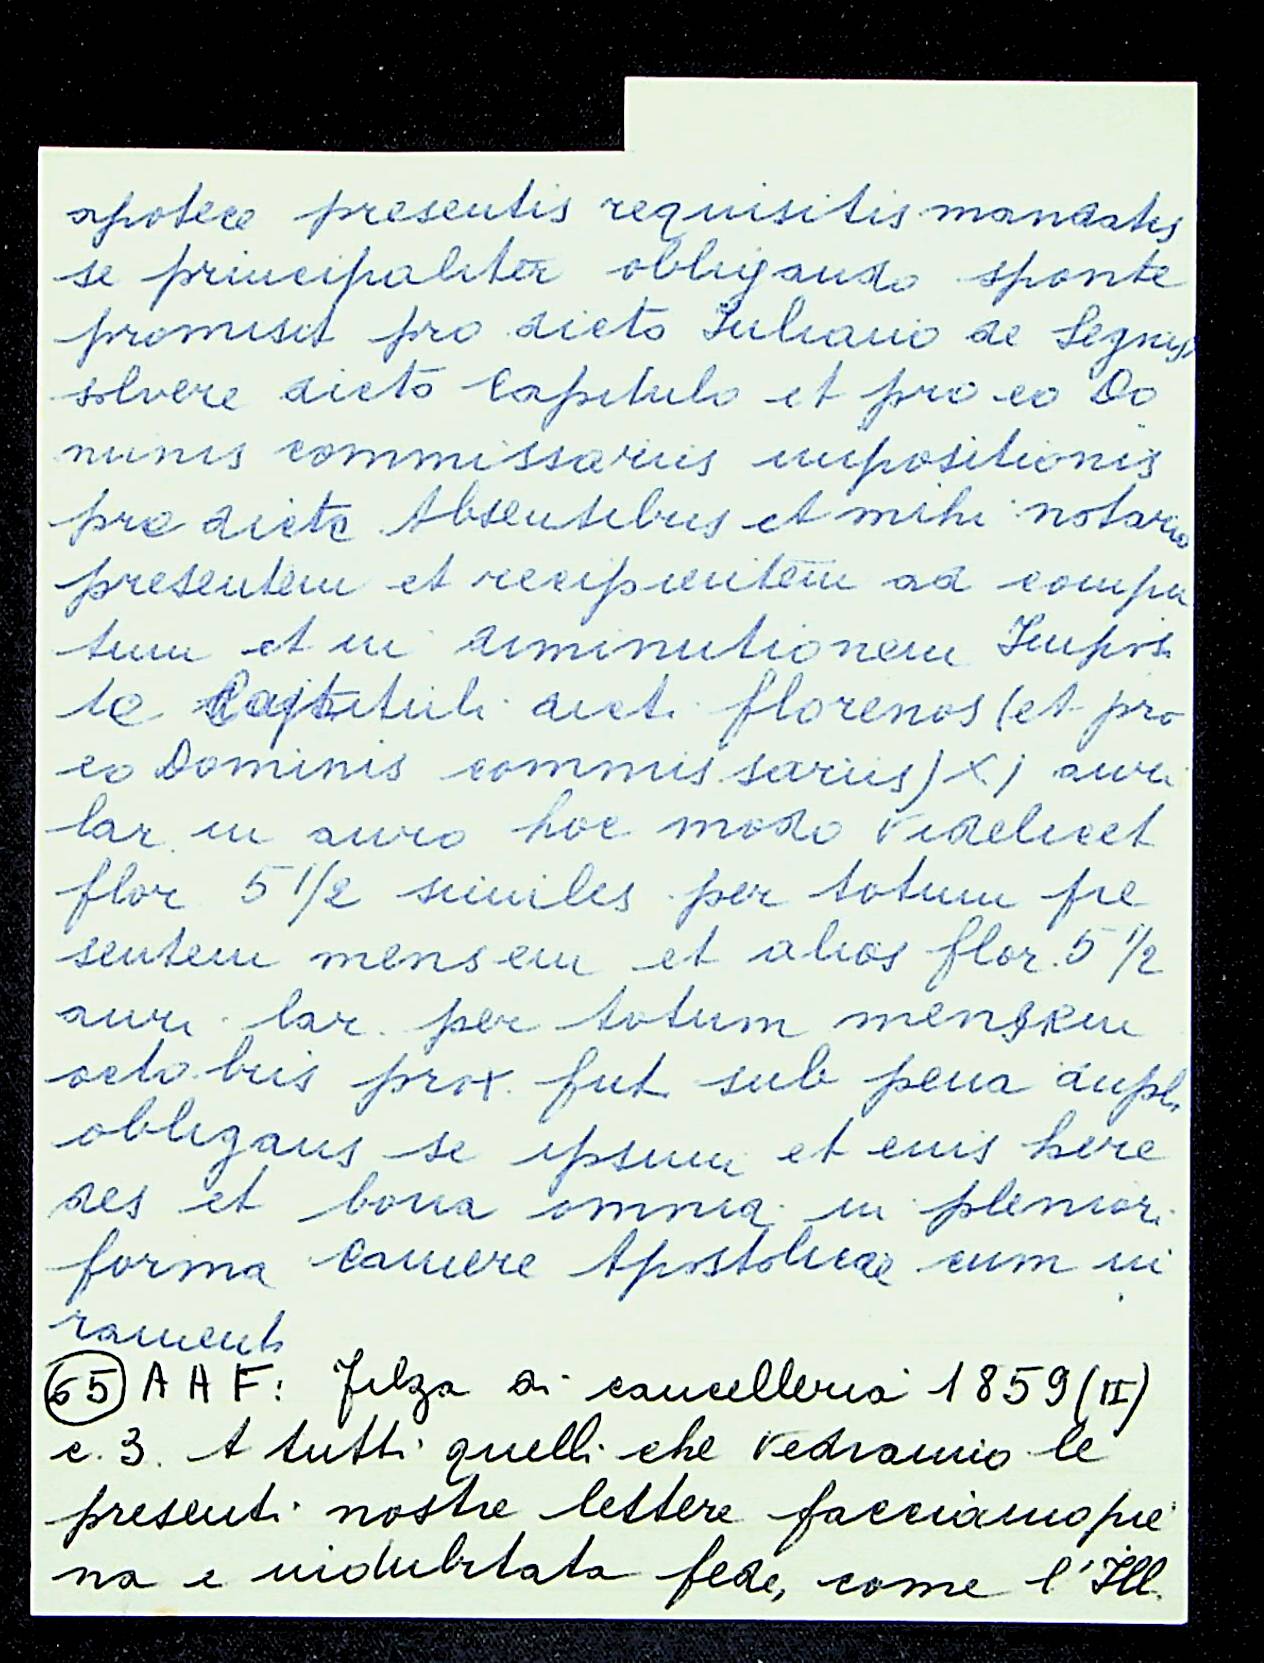 apotece presentis requisitis mandatis
se principaliter obligando sponte
promisit pro dicto Juliano de Segnis
solvere dicto Capitulo et pro eo Do
minis commissariis impositionis
pre dicte Absentibus et mihi notario
presentem et recipientem ad compu
tum et in diminutionem Imposi
te Capituli dicti florenos (et pro
eo Dominis commissariis) XI auri
lar. in auro hoc modo Videlicet
flor 5 1/2 similes per totum pre
sentem mensem et alios flor. 5 1/2
auri lar. per totum mensem
octobris prox. fut. sub pena dupli
obligans se ipsum et euis here
des et bona omnia in pleniori
forma Camere Apostolicae cum iu
ramenti
65 A A F: Filza di cancelleria 1859 (II)
c. 3. A tutti quelli che vedranno le
presenti nostre lettere facciamo pie
na e indubitata fede, come l'Ill.